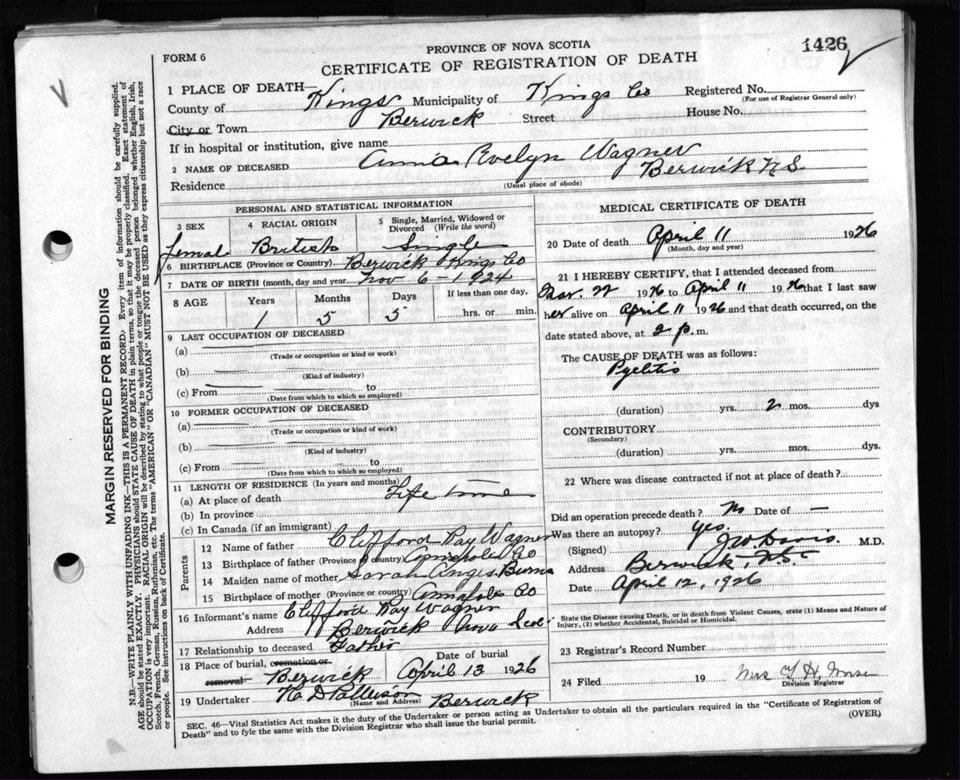 PROVINCE OF NOVA SCOTIA
1426
FORM 6
CERTIFICATE OF REGISTRATION OF DEATH
1 PLACE OF DEATH—
County of Kings Municipality of Kings Co Registered No.
(For use of Registrar General only)
City or Town Berwick Street House No.
If in hospital or institution, give name
2 NAME OF DECEASED Annia Evelyn Wagner
Residence Berwick N.S.
(Usual place of abode)
PERSONAL AND STATISTICAL INFORMATION
3 SEX 4 RACIAL ORIGIN 5 Single, Married, Widowed or Divorced (Write the word)
femal British Single
6 BIRTHPLACE (Province or Country) Berwick Kings Co
7 DATE OF BIRTH (month, day and year Nov 6 - 1924
8 AGE Years Months Days If less than one day,
1 5 5 hrs. or min.
9 LAST OCCUPATION OF DECEASED
(a)
(Trade or occupation or kind or work)
(b)
(Kind of industry)
(c) From to
(Date from which to which so employed)
10 FORMER OCCUPATION OF DECEASED
(a)
(Trade or occupation or kind of work)
(b)
(Kind of industry)
(c) From to
(Date from which to which so employed)
11 LENGTH OF RESIDENCE (In years and months)
(a) At place of death Life time
(b) In province
(c) In Canada (if an immigrant)
Parents
12 Name of father Clifford Ray Wagner
13 Birthplace of father (Province or country) Annapolis Co
14 Maiden name of mother Sarah Anges Burns
15 Birthplace of mother (Province or country) Annapolis Co
16 Informant's name Clifford Ray Wagner
Address Berwick Nova Scoti
17 Relationship to deceased Father
18 Place of burial, cremation or removal Berwick Date of burial April 13 1926
19 Undertaker Berwick
(Name and Address)
MEDICAL CERTIFICATE OF DEATH
20 Date of death April 11 1926
(Month, day and year)
21 I HEREBY CERTIFY, that I attended deceased from
1926 to April 11 1926 that I last saw
her alive on April 11 1926 and that death occurred, on the
date stated above, at 2 p. m.
The CAUSE OF DEATH was as follows:
Pyelitis
(duration) yrs. 2 mos. dys
CONTRIBUTORY
(Secondary)
(duration) yrs. mos. dys.
22 Where was disease contracted if not at place of death?
Did an operation precede death? No Date of —
Was there an autopsy? Yes.
(Signed) M.D.
Address Berwick, N.S.
Date April 12, 1926
State the Disease causing Death, or in death from Violent Causes, state (1) Means and Nature of
Injury, (2) whether Accidental, Suicidal or Homicidal.
23 Registrar's Record Number
24 Filed 19
Division Registrar
SEC. 46—Vital Statistics Act makes it the duty of the Undertaker or person acting as Undertaker to obtain all the particulars required in the "Certificate of Registration of
Death" and to fyle the same with the Division Registrar who shall issue the burial permit.
(OVER)
MARGIN RESERVED FOR BINDING
N.B.—WRITE PLAINLY WITH UNFADING INK—THIS IS A PERMANENT RECORD. Every item of information should be carefully supplied.
AGE should be stated EXACTLY. PHYSICIANS should STATE CAUSE OF DEATH in plain terms, so that it may be properly classified. Exact statement of
OCCUPATION is very important. RACIAL ORIGIN will be described by stating to what people or tongue the deceased person belonged whether English, Irish,
Scotch, French, German, Russian, Ruthenian, etc. The terms "AMERICAN" OR "CANADIAN" MUST NOT BE USED as they express citizenship but not a race
or people. See instructions on back of Certificate.